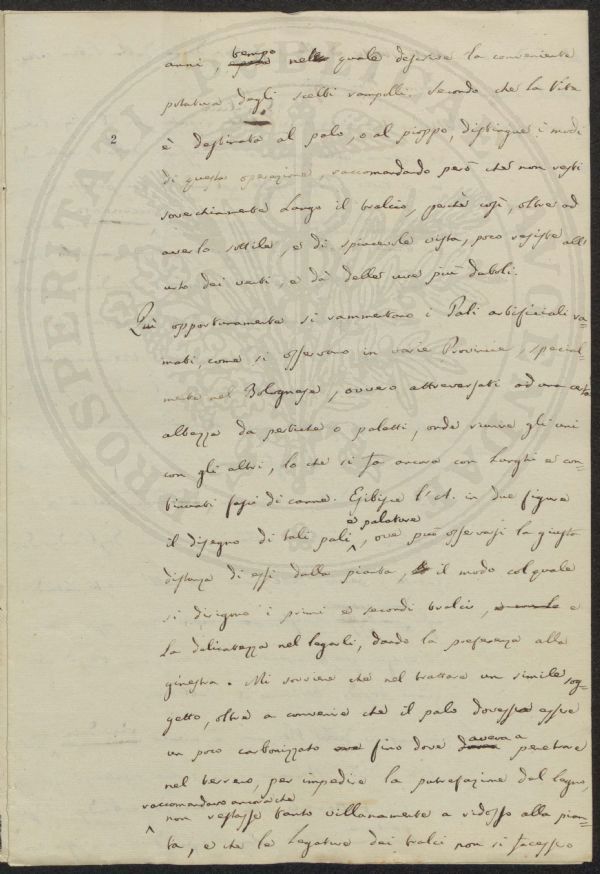 anni, tempo nel quale descrive la conveniente
potatura dagli scelti rampolli. Secondo che la Vite
2
è destinata al palo, o al pioppo, distingue i modi
di questa operazione, raccomandando però che non resti
soverchiamente lungo il tralcio, perchè così, oltre ad
averlo sottile, e di spiacevole vista, poco resiste all'
urto dei venti, e dà delle uve più deboli.
Quì opportunamente si rammentano i Pali artificiali ra=
mati, come si osservano in varie Provincie, special=
mente nel Bolognese, ovvero attraversati ad una certa
altezza da pertiche o paletti, onde riunire gli uni
con gli altri, lo che si fa ancora con lunghi e con=
tinuati fasci di canne. Esibisce l'A. in due figure
il disegno di tali pali e palature, ove può osservarsi la giusta
distanza di essi dalla pianta, il modo col quale
si dirigono i primi e secondi tralci, e
la delicatezza nel legarli, dando la preferenza alla
ginestra. Mi sovviene che nel trattare un simile sog=
getto, oltre a convenire che il palo dovesse essere
un poco carbonizzato fino dove aveva a penetrare
nel terreno, per impedire la putrefazione dal legno,
raccomandavo ancora che
non restasse tanto villanamente a ridosso alla pian=
ta, e che le legature dei tralci non si facessero
PROSPERITATI PUBLICAE AUGENDAE